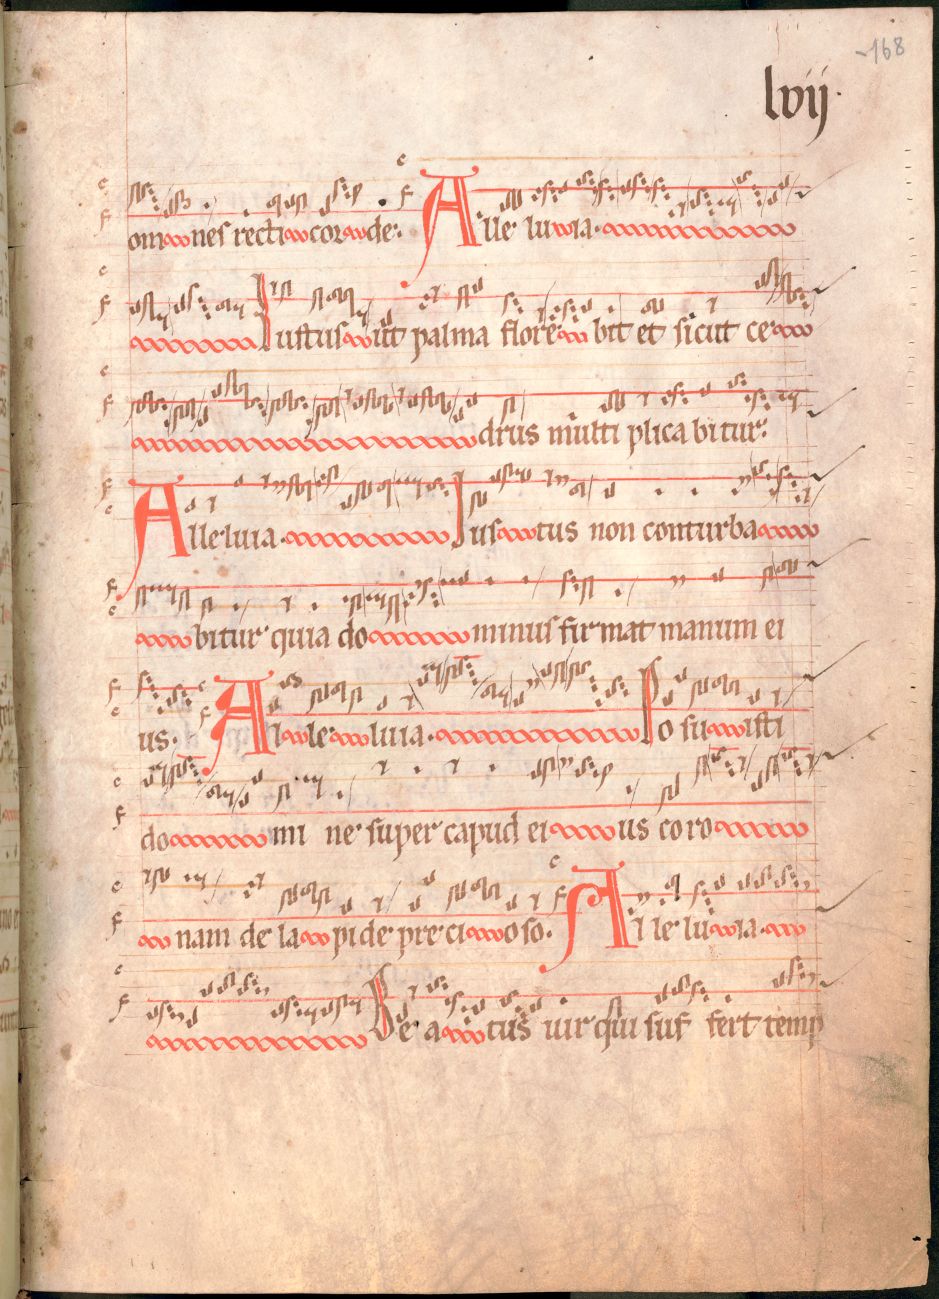 -168
lvij.
omnes recti corde. Alle luia.
Iustus ut palma florebit et sicut ce
drus multi plica bitur.
Alleluia. Iustus non conturba
bitur quia dominus firmat manum ei
us. Alleluia. Posuisti
domine super capud eius coro
nam de lapide precioso. Alleluia.
Beatus uir qui suf fert temp